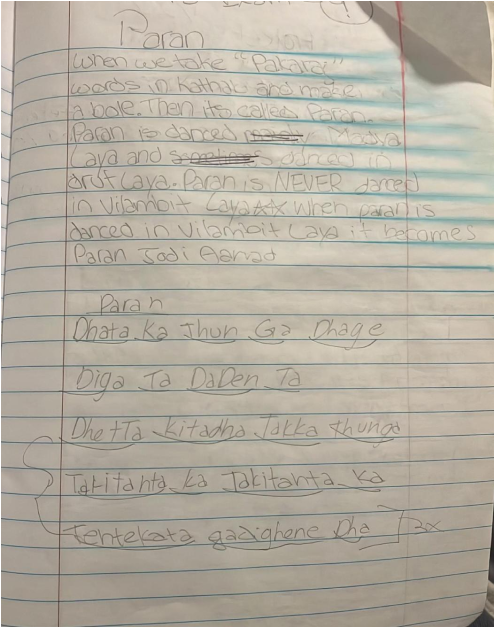 Paran
When we take "Pakaraj"
words in kathak and make
a bole. Then its called Paran.
Paran is danced Madya
Laya and danced in
drut Laya. Paran is NEVER danced
in Vilambit Laya When paran is
danced in Vilambit Laya it becomes
Paran Jodi Aamad
Paran
Dhata Ka Thun Ga Dhage
Diga Ta DaDen Ta
DhetTa Kitadha Takka thunga
Takitahta Ka Takitahta Ka
Tentekata gadighene Dha ] 3x